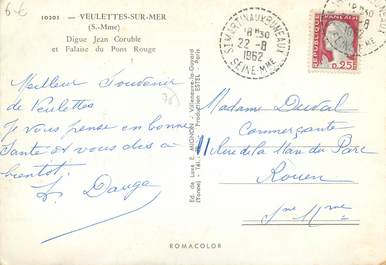 6-E
10203 - VEULETTES-SUR-MER
(S.-Mme)
Digue Jean Coruble
et Falaise du Pont Rouge
Meilleur Souvenir
de Veulettes
Je vous pense en bonne
Santé et vous dis a
bientôt.
Dauga
Ed. de Luxe E. MIGNON - Villeneuve-la-Guyard
(Yonne) - Tél.
Production ESTEL - Paris
ST MARTIN AUX BUNEAUX
8H30
22-8
1962
SEINE-MME
REPUBLIQUE FRANÇAISE
0,25
Madame Duval
Commerçante
Rue de la Mare du Parc
Rouen
Sne Mme
ROMACOLOR